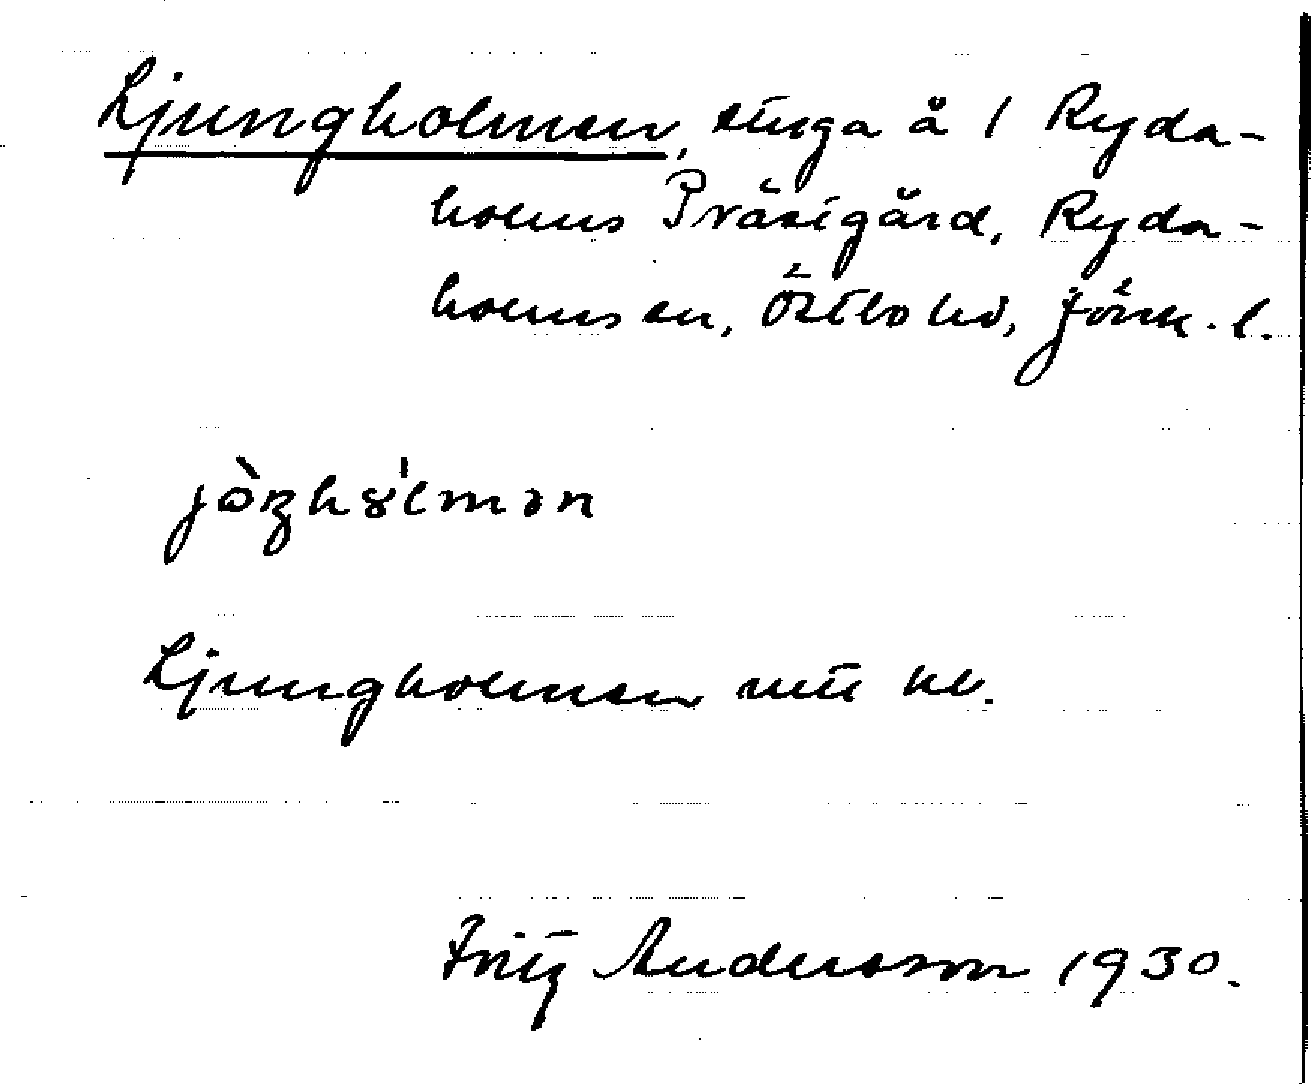 Ljungholmen, stuga å 1 Ryda-
holms Prästgård, Ryda-
holms sn, Östbo hd, Jönk. l.
Ljungholmen
Fritz Andersson 1930.